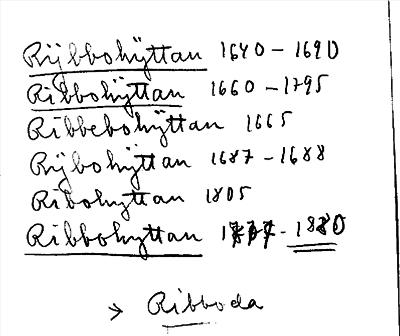 Rijbbohÿttan 1640 - 1690
Ribbohÿttan 1660 - 1795
Ribbebohÿttan 1665
Rijbohÿttan 1687 - 1688
Ribohyttan 1805
Ribbohyttan 1777 - 1880
> Ribboda